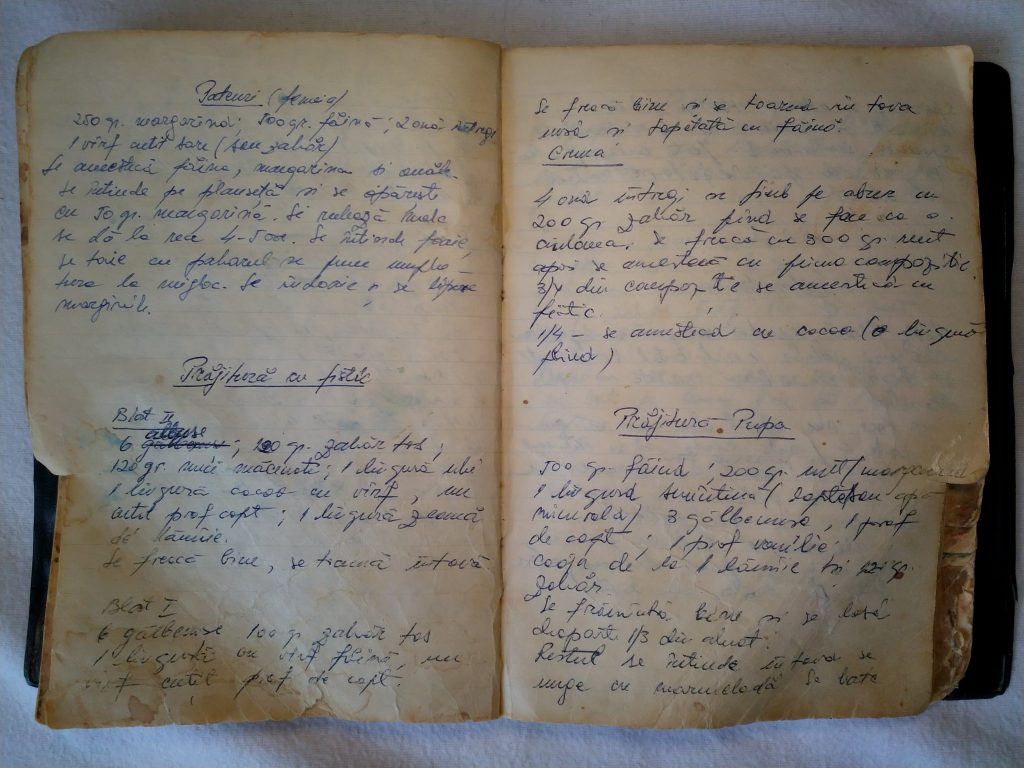 250 gr. margarină; 500 gr. făină; 2 ouă
1 vîrf cuțit sare (sau zahăr)
Se amestecă făina, margarina și ouăle
se întinde pe planșetă și se
cu 50 gr. margarină. Se rulează
se dă la rece 4-5 ore. Se întinde foaie,
se taie cu paharul se pune
la mijloc. Se îndoaie și se lipesc
marginile.
Prăjitură cu fistic
Blat II
albușe
6 ; gr. zahăr tos;
120 gr. nuci măcinate; 1 lingură ulei
1 lingură cacao cu vîrf, un
cuțit praf copt; 1 lingură zeamă
de lămîie.
Se freacă bine, se toarnă în tavă
Blat I
6 gălbenușe 100 gr. zahăr tos
1 lingură cu vîrf făină, un
vîrf cuțit praf de copt.
Se freacă bine și se toarnă în tava
unsă și tapetată cu făină.
Crema
4 ouă întregi se fierb pe abur cu
200 gr. zahăr pînă se face ca o
Se freacă cu 300 gr. unt
apoi se amestecă cu prima compoziție
3/4 din compoziție se amestecă cu
fistic.
1/4 - se amestecă cu cacao (o lingură
plină)
Prăjitură Pupa
500 gr. făină; 200 gr. unt/margarină
1 lingură smîntînă (lapte sau apă
minerală) 3 gălbenușe, 1 praf
de copt; 1 praf vanilie;
coaja de la 1 lămîie și gr.
zahăr.
Se frămîntă bine și se lasă
deoparte 1/3 din aluat.
Restul se întinde în tavă se
unge cu marmeladă. Se bate